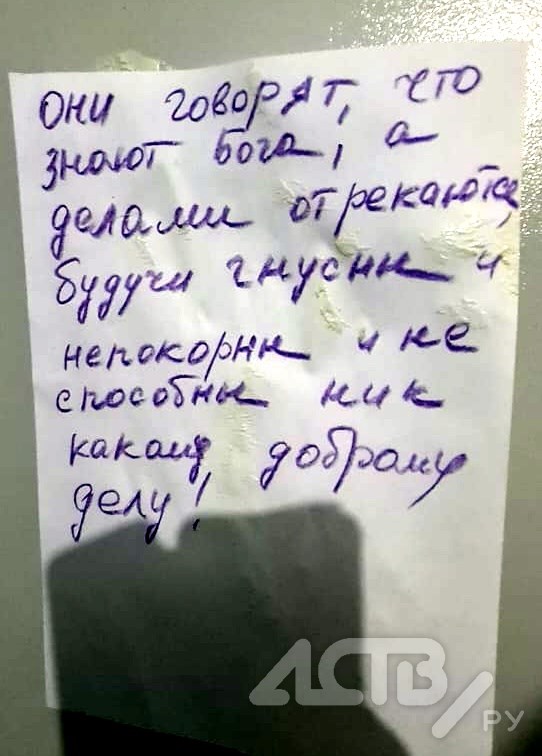 они говорят, что
знают Бога, а
делами отрекаются,
будучи гнусны и
непокорны и не
способны ник
какому доброму
делу!
АСТВ
.РУ